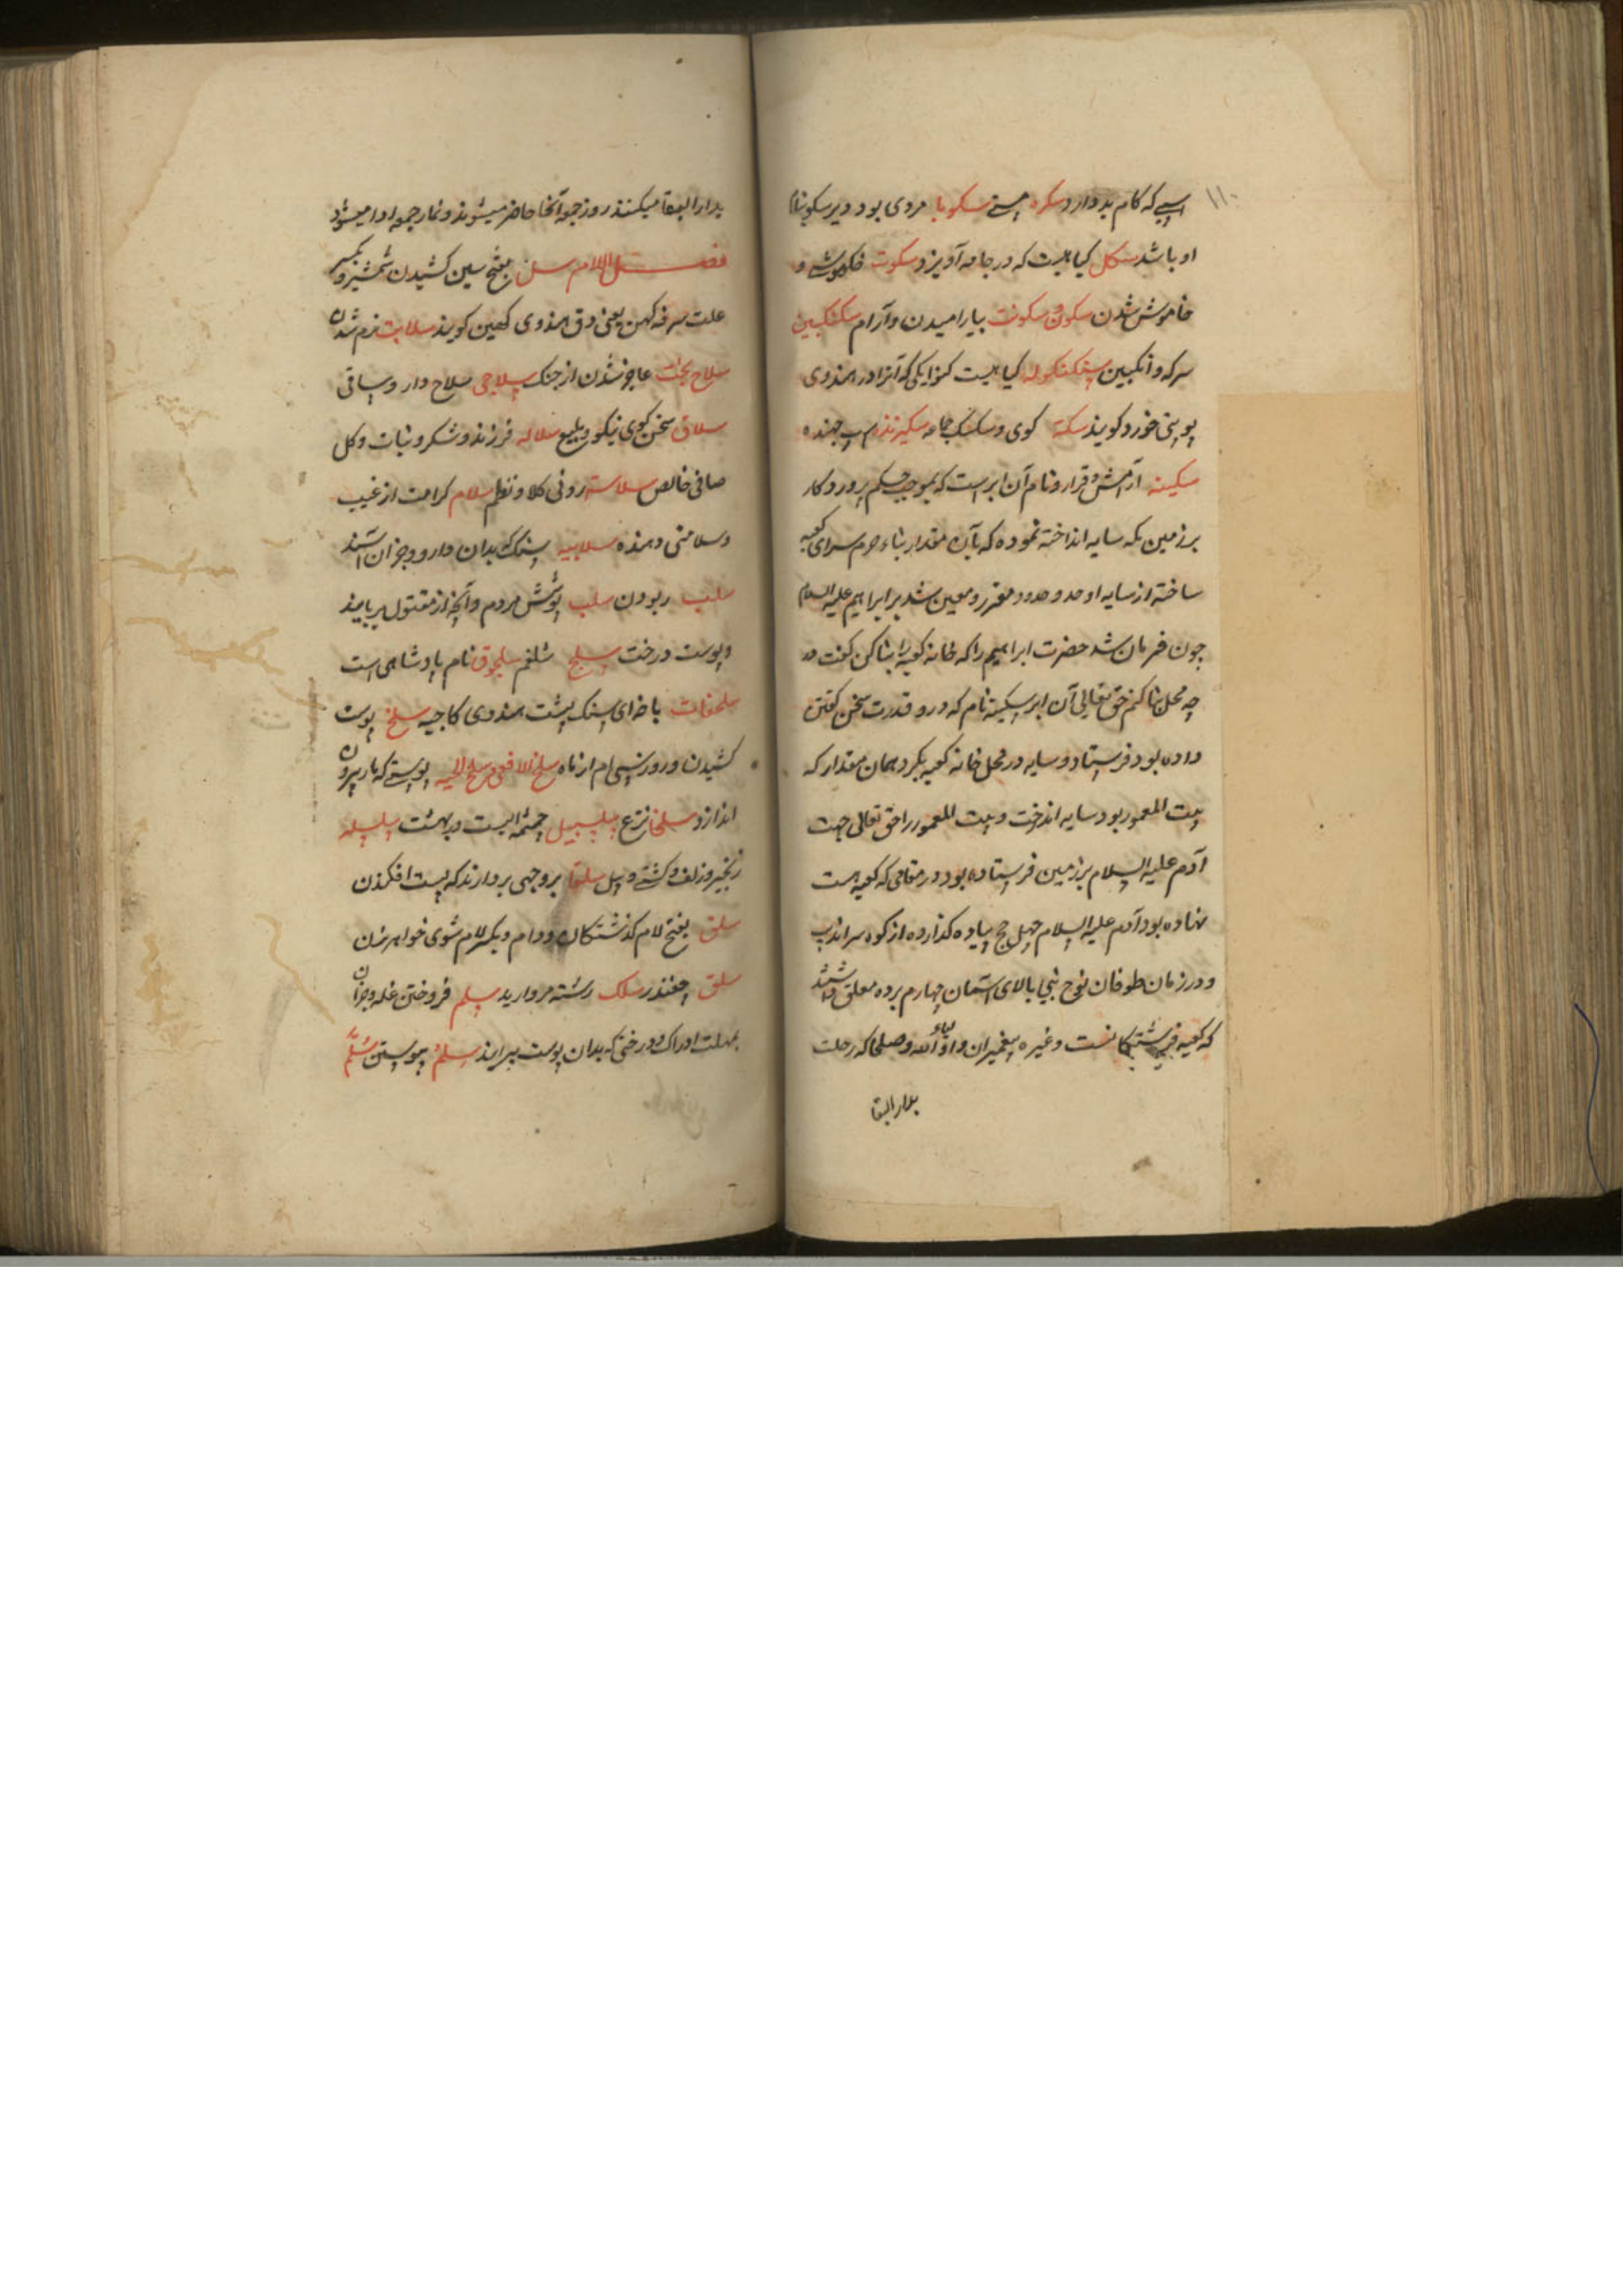 ۱۱۰
اسپی که کام بد دارد سکره مستی سکوبا مردی بود و دیر سکوبا نام
او باشد سکل کیاهیست که در جامه آویزد سکوت خاموشی و
خاموش شدن سکون و سکونت بیارامیدن و آرام سکنکبین
سرکه و انکبین سکنکوله کیاهیست که آنرا در هندوی
خورد کویند سکنة کوی و مسکنک جماعه سکیزنده اسپ جهنده
سکینه آرامش و قرار و نام آن ابر است که بموجب حکم پرورد کار
بر زمین مکه سایه انداخته نموده که بآن مقدار بناء حرم سرای کعبه
ساخته از سایه او حد و حدود مقرر و معین شد بر ابراهیم علیه السلام
چون فرمان شد حضرت ابراهیم را که خانه کعبه را بنا کن کفت در
چه محل بنا کنم حق تعالی آن ابر سکینه نام که درو قدرت سخن کفتن
داده بود فرستاد و سایه در محل خانه کعبه بکرد همان مقدار که
بیت المعمور بود سایه انداخت و بیت المعمور را حق تعالی جهت
آدم علیه السلام بر زمین فرستاده بود در مقامی که کعبه است
نهاده بود آدم علیه السلام چهل حج پیاده کذارده از کوه سراندیب
و در زمان طوفان نوح نبی بالای آسمان چهارم برده معلق داشتند
که کعبه فرشتکانست و غیره پیغمبران و اولیاء الله و صلحا که رحلت
بدار البقا
بدار البقا میکنند روز جمعه آنجا حاضر میشوند و نماز جمعه ادا میشود
فصل اللام سل بفتح سین کشیدن شمشیر و بکسر
علت سرفه کهن یعنی دق هندوی کهین کویند سلابت نرم شدن
سلاح عاجز شدن از جنک سلاحی سلاح دار و ساقی
سلاق سخن کوی نیکو و بلیغ سلاله فرزند و شکر و نبات و کل
صافی خالص سلاست روانی کلام و نظم سلام کرامت از غیب
و سلامتی دهنده سلابیه سنک که بدان دارو و جز آن آسیند
سلب ربودن سلب پوشش مردم و آنچه از مقتول بربایند
و پوست درخت سلج شلغم سلجوق نام پادشاهی است
سلحفات باخه ای سنک پشت هندوی کاجیه سلخ پوست
کشیدن و روز سی ام از ماه سلخ الافعی و سلخ الحیه پوستی که مار بیرون
اندازد سلخا نزع سلسبیل چشمه ایست در بهشت سلسله
زنجیر و زلف و کشتی و پل سلقا بر وجهی بر دارند که پست افکندن
سلف بفتح لام کذشتکان و وام و بکسر لام شوی خواهر زن
سلق چغندر سلک رشته مروارید سلم فروختن غله و جز آن
بمهلت ادراک و درختی که بدان پوست پیرایند سلم پیوستن سلم